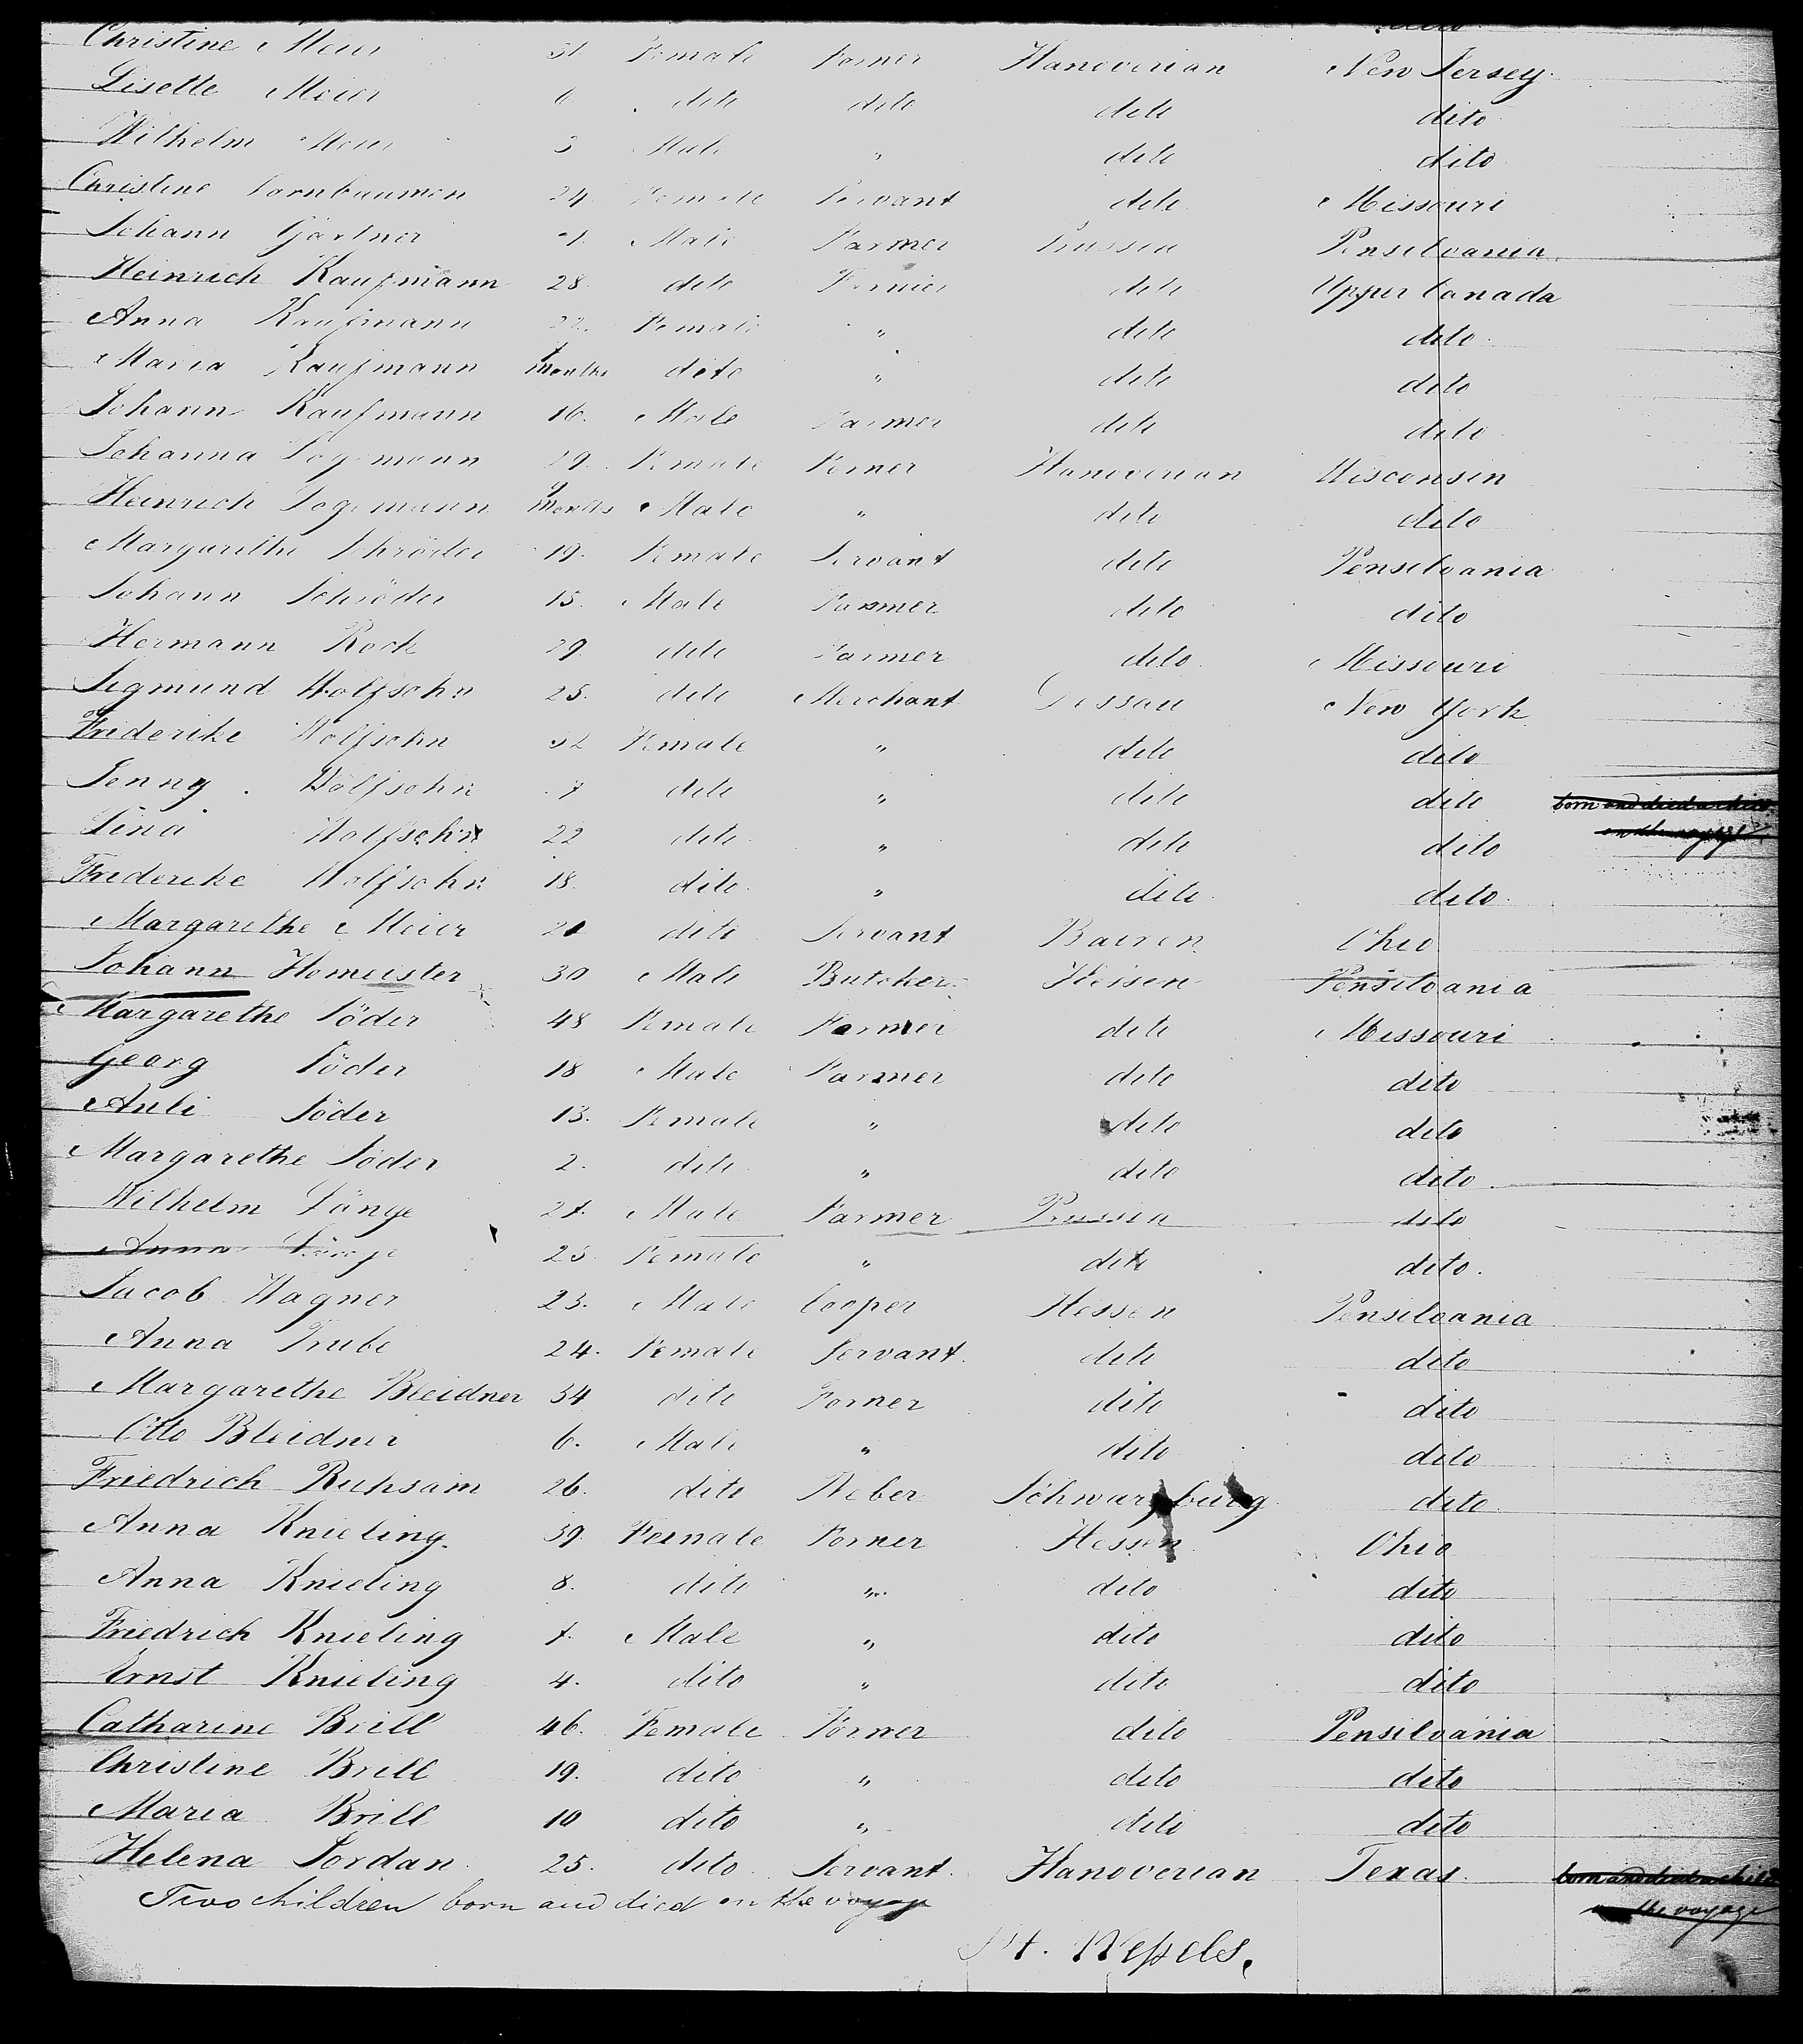 dito
Christine Meier 31. Female Forner Hanoverian New Jersey
Lisette Meier 6 dito dito dito dito
Wilhelm Meier 3 Male " dito dito
Christine 24 Female Servant dito Missouri
Johann Gärtner Male Farmer Prussia Pensilvania
Heinrich Kaufmann 28 dito dito Upper Canada
Anna Kaufmann 22. Female " dito dito
Maria Kaufmann Months dito " dito dito
Johann Kaufmann 16. Male Farmer dito dito
Johanna 29. Female Forner Hanoverian Wisconsin
Heinrich 9 Months Male " dito dito
Margarethe Schröder 19. Female Servant dito Pensilvania
Johann Schröder 15. Male Farmer dito dito
Hermann Rock 29. dito Farmer dito Missouri
Sigmund Wolfsohn 25. dito Merchant Dessau New York
Friderike Wolfsohn 32 Female " dito dito
Jenny Wolfsohn 7 dito " dito dito born and died a child
on the voyage
Lina Wolfsohn 22 dito " dito dito
Friderike Wolfsohn 18. dito " dito dito
Margarethe Meier 21 dito Servant Baiern Ohio
Johann Homeister 30 Male Butcher Hessen Pensilvania
Margarethe Söder 48 Female Farmer dito Missouri
Georg Söder 18 Male Farmer dito dito
Anli Söder 13. Female " dito dito
Margarethe Söder 2. dito " dito dito
Wilhelm Länge 27. Male Farmer Prussia dito
Anna Länge 25. Female " dito dito
Jacob Wagner 23. Male Cooper Hessen Pensilvania
Anna Trube 24. Female Servant. dito dito
Margarethe Bleidner 34 dito Forner dito dito
Otto Bleidner 6. Male " dito dito
Friedrich Ruhsam 26. dito Weber Schwarzburg dito
Anna Knieling. 39. Female Forner Hessen Ohio
Anna Knieling 8. dito " dito dito
Friedrich Knieling 7. Male " dito dito
Ernst Knieling 4. dito " dito dito
Catharine Brill 46. Female Forner dito Pensilvania
Christine Brill 19. dito " dito dito
Maria Brill 10 dito " dito dito
Helena Jordan 25. dito Servant. Hanoverian Texas. born and died a child
the voyage
Two children born and died on the voyage
H. Weßels.